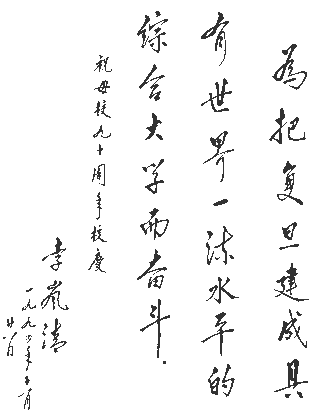 為把复旦建成具
有世界一流水平的
综合大学而奋斗.
祝母校九十周年校庆
李岚清
一九九 年十一月